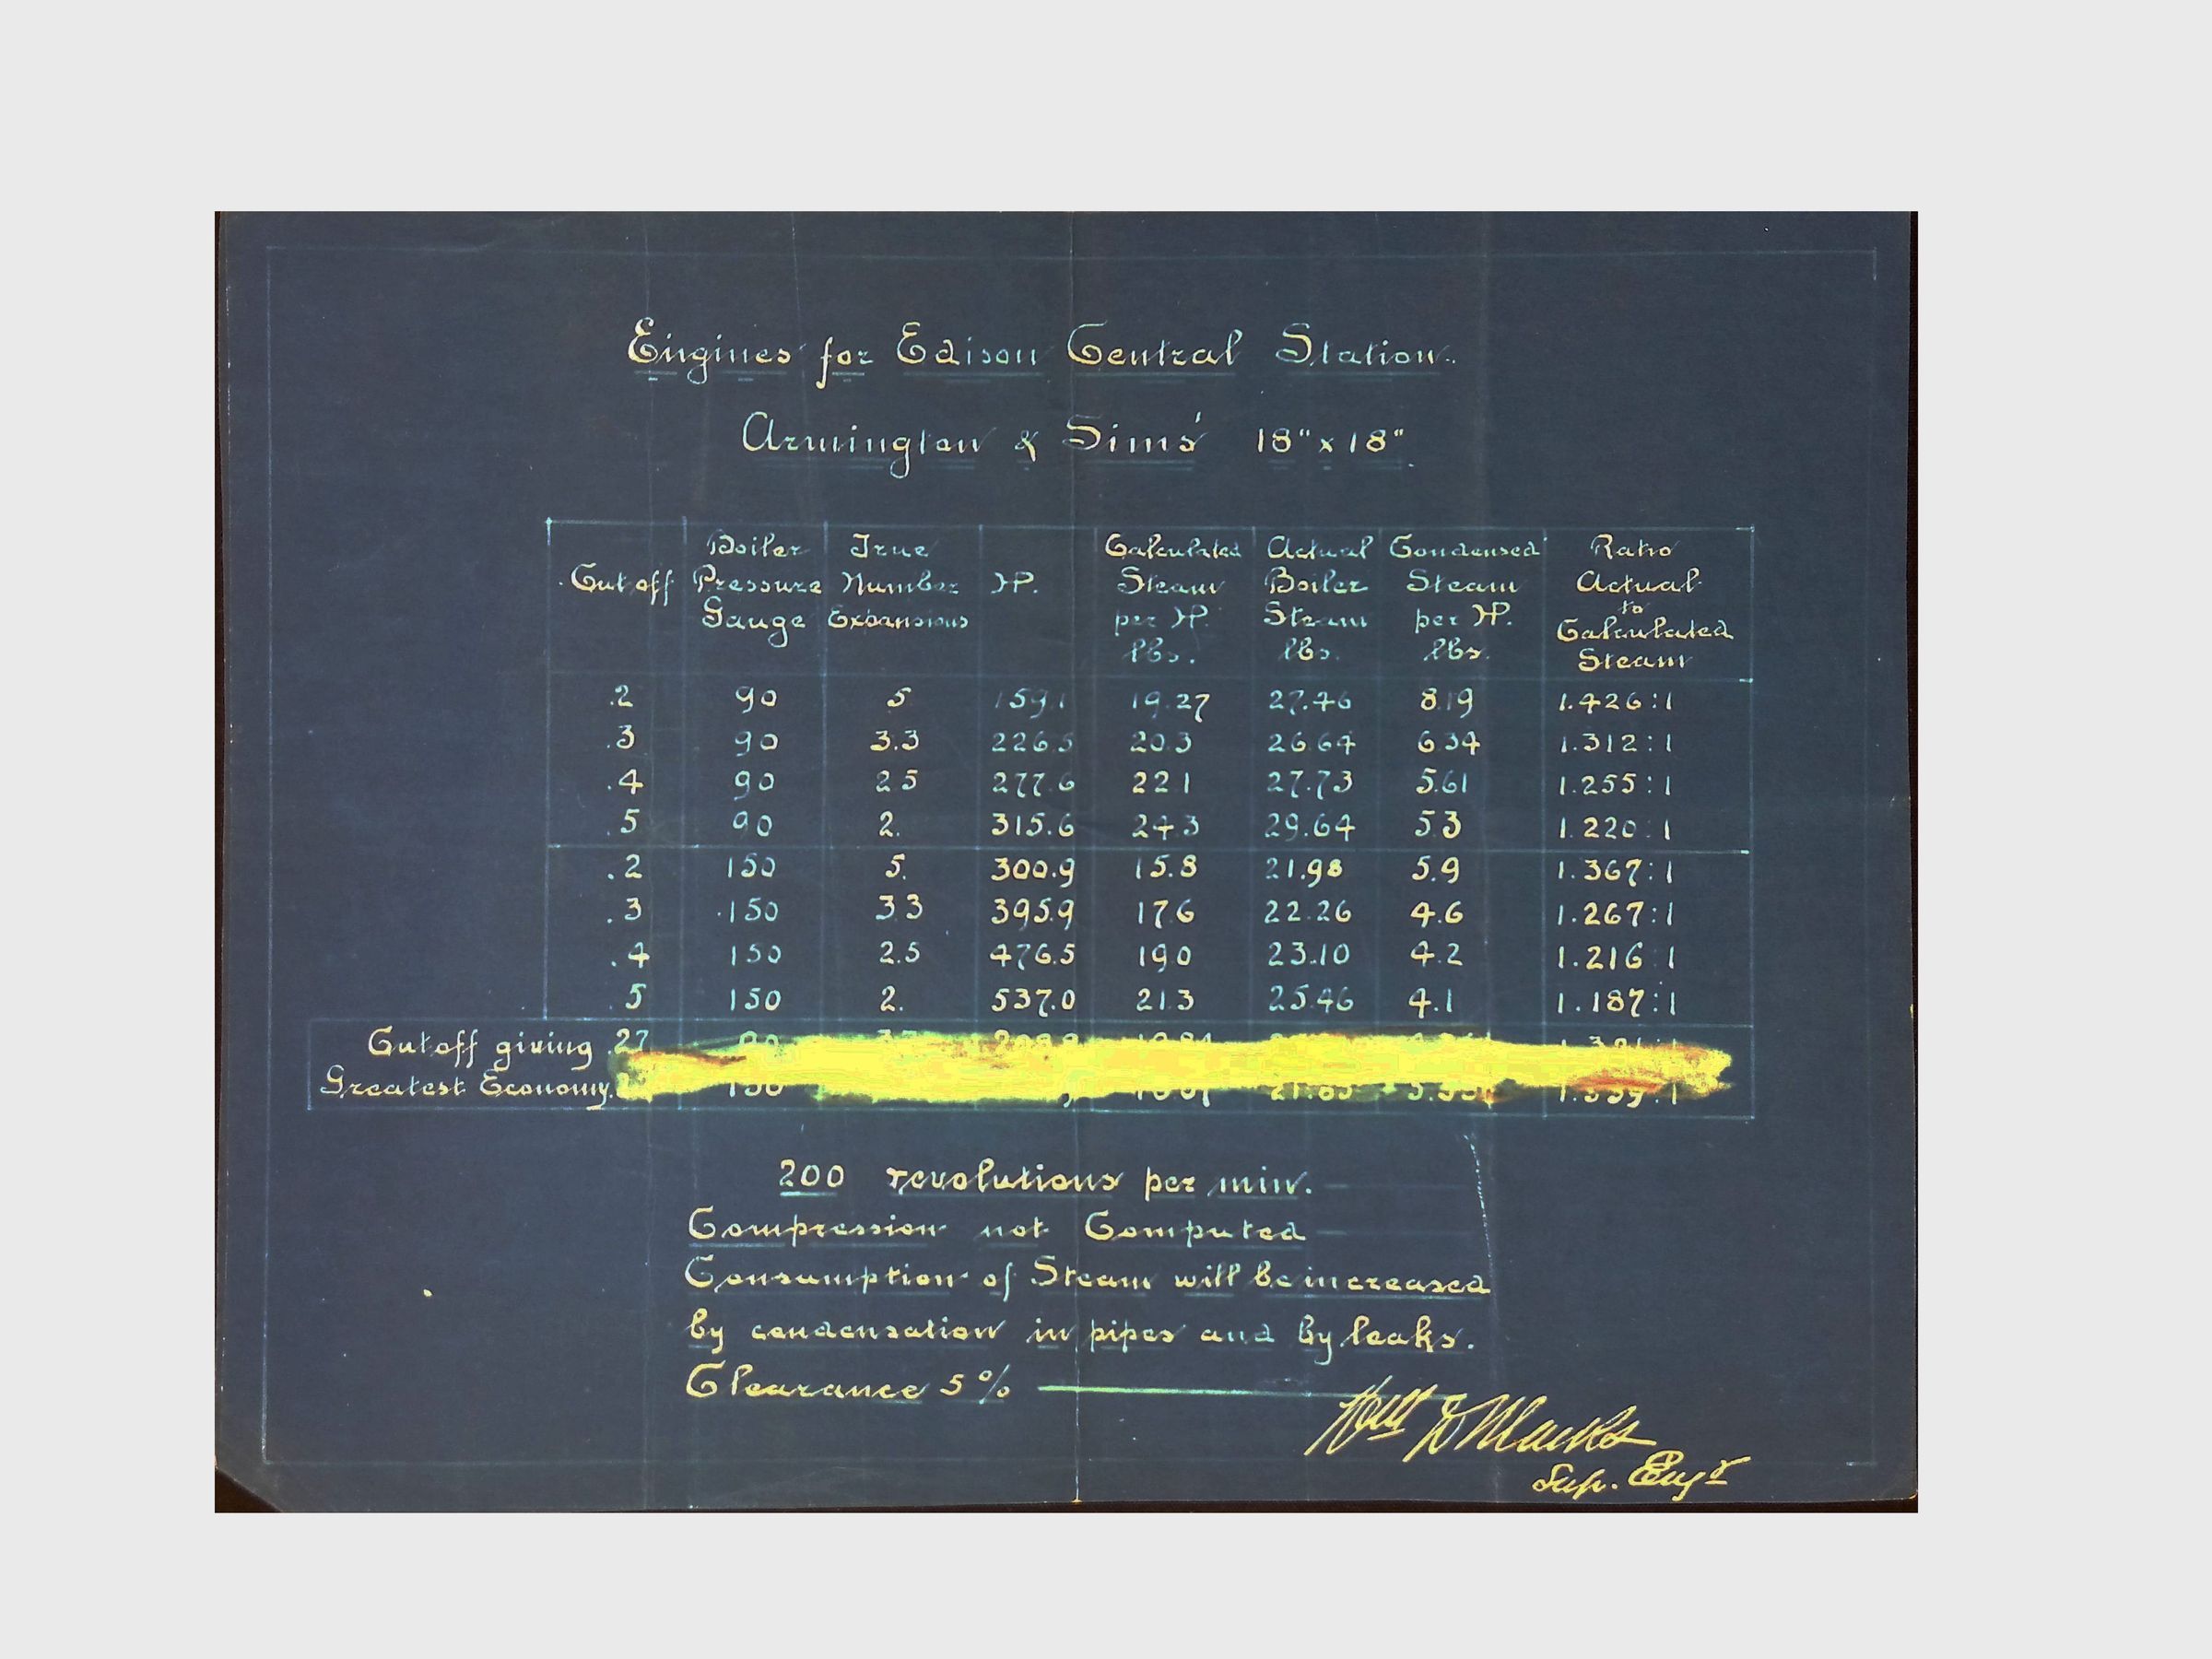 Engines for Edison Central Station.
Armington & Sims' 18" x 18".
Cut off Boiler Pressure Gauge True Number Expansions HP. Calculated Steam per HP. lbs. Actual Boiler Steam lbs. Condensed Steam per HP. lbs. Ratio Actual to Calculated Steam
.2 90 5 159.1 19.27 27.46 8.19 1.426:1
.3 90 3.3 226.5 20.3 26.64 6.34 1.312:1
.4 90 2.5 277.6 22.1 27.73 5.61 1.255:1
.5 90 2. 315.6 24.3 29.64 5.3 1.220:1
.2 150 5. 300.9 15.8 21.98 5.9 1.367:1
.3 150 3.3 395.9 17.6 22.26 4.6 1.267:1
.4 150 2.5 476.5 19.0 23.10 4.2 1.216:1
.5 150 2. 537.0 21.3 25.46 4.1 1.187:1
Cutoff giving .27
Greatest Economy. 150
200 revolutions per min.
Compression not Computed
Consumption of Steam will be increased
by condensation in pipes and by leaks.
Clearance 5%
Wm D Marks
Sup. Engr